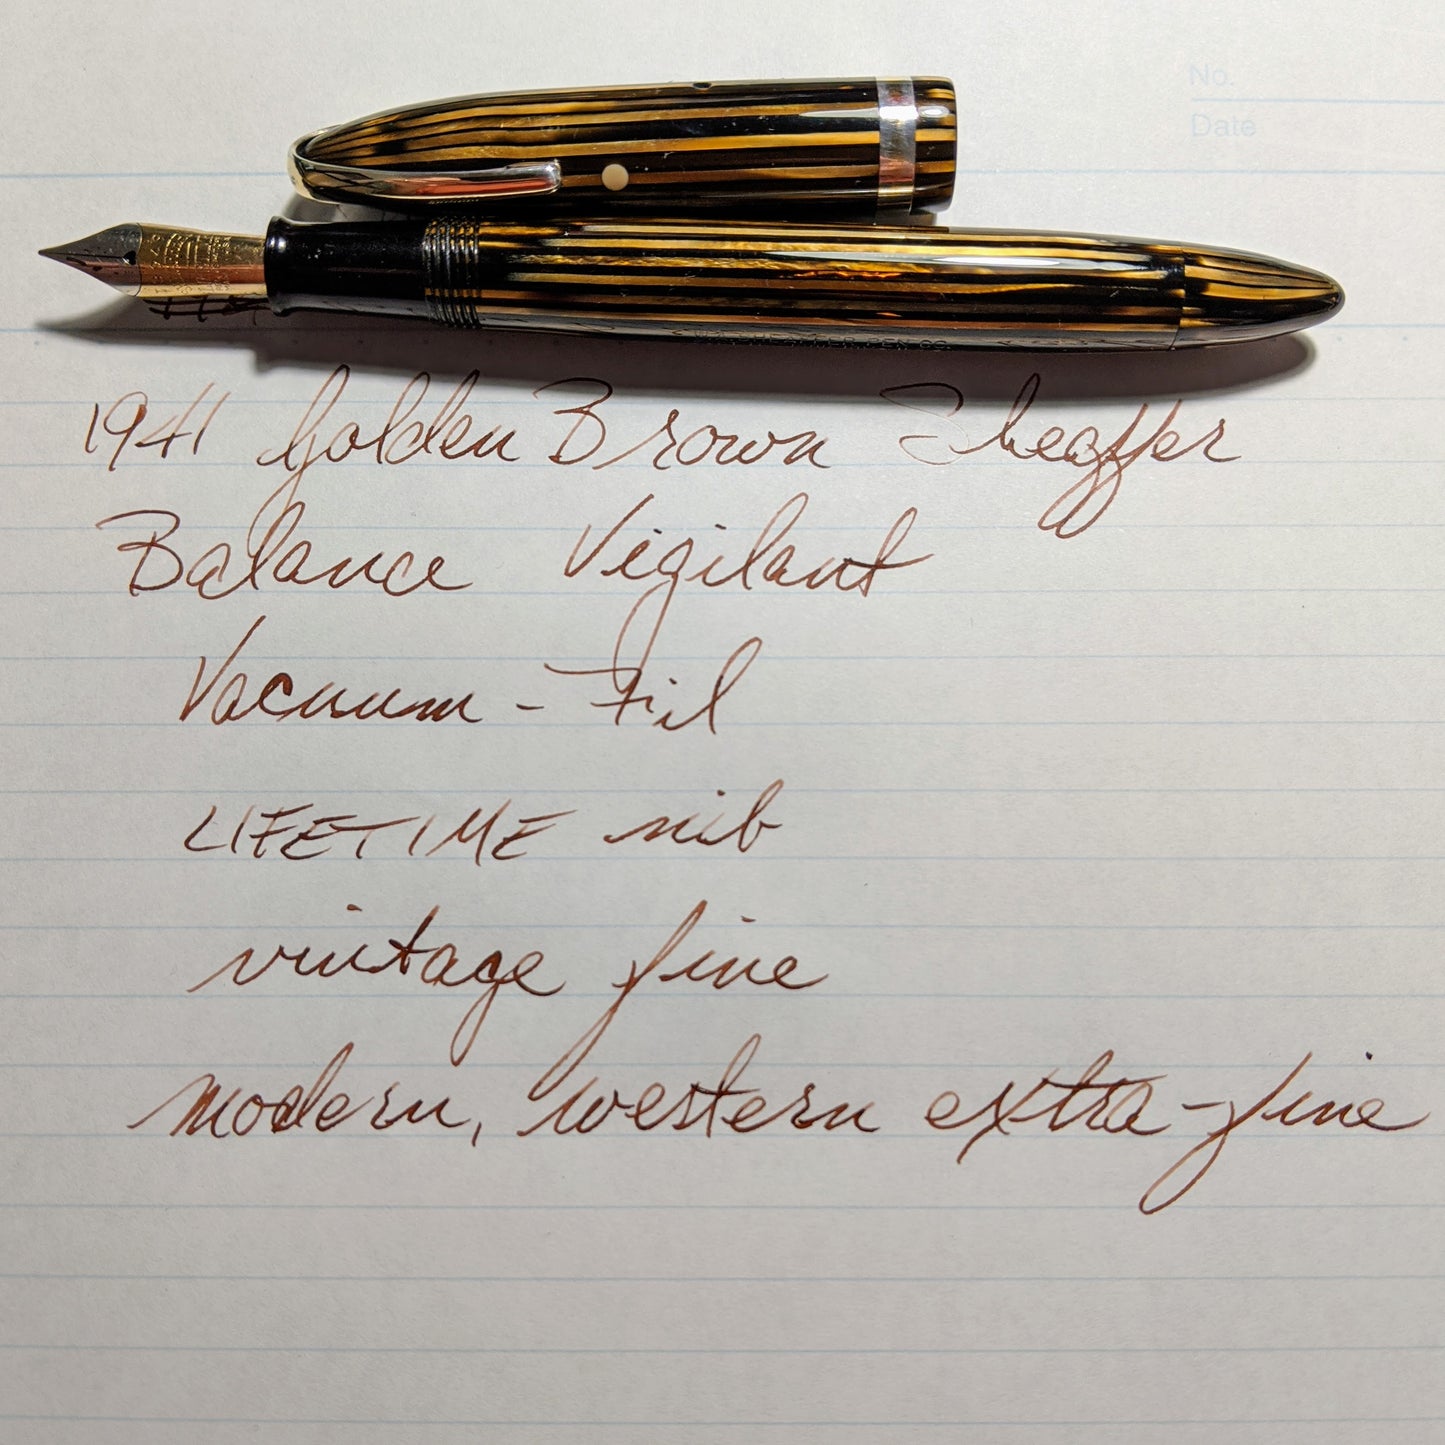 No.
Date
1941 Golden Brown Sheaffer
Balance Vigilant
Vacuum-Fil
LIFETIME nib
vintage fine
modern, western extra-fine